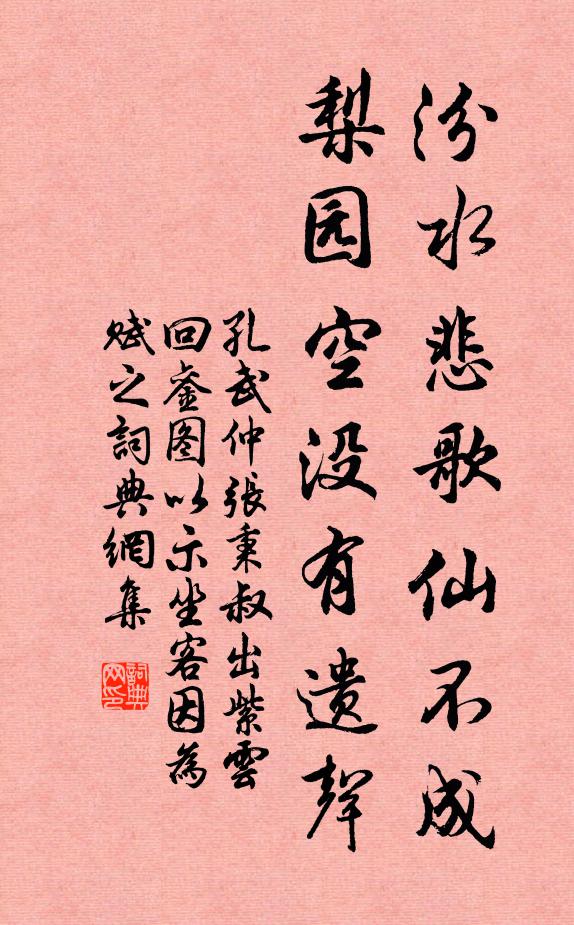 汾水悲歌仙不成
梨园空没有遗聲
孔武仲張秉叔出紫雲
回銮图以示坐客因為
赋之詞典網集
詞典网印